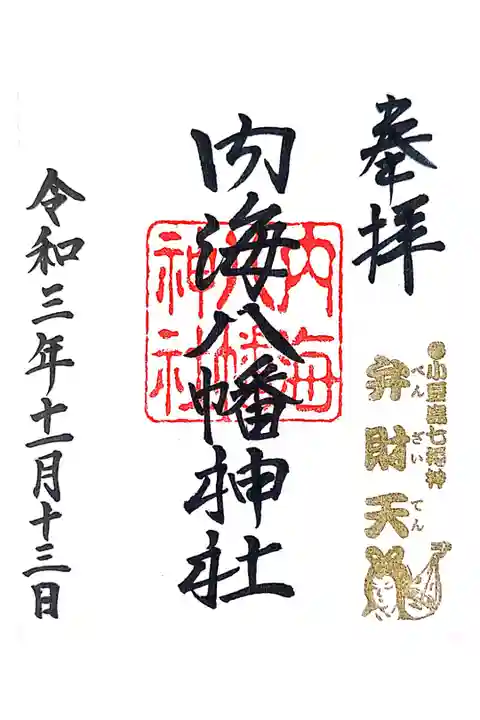 奉拝
●小豆島七福神
弁財天
べんざいてん
内海八幡神社
内海
八幡
神社
令和三年十一月十三日